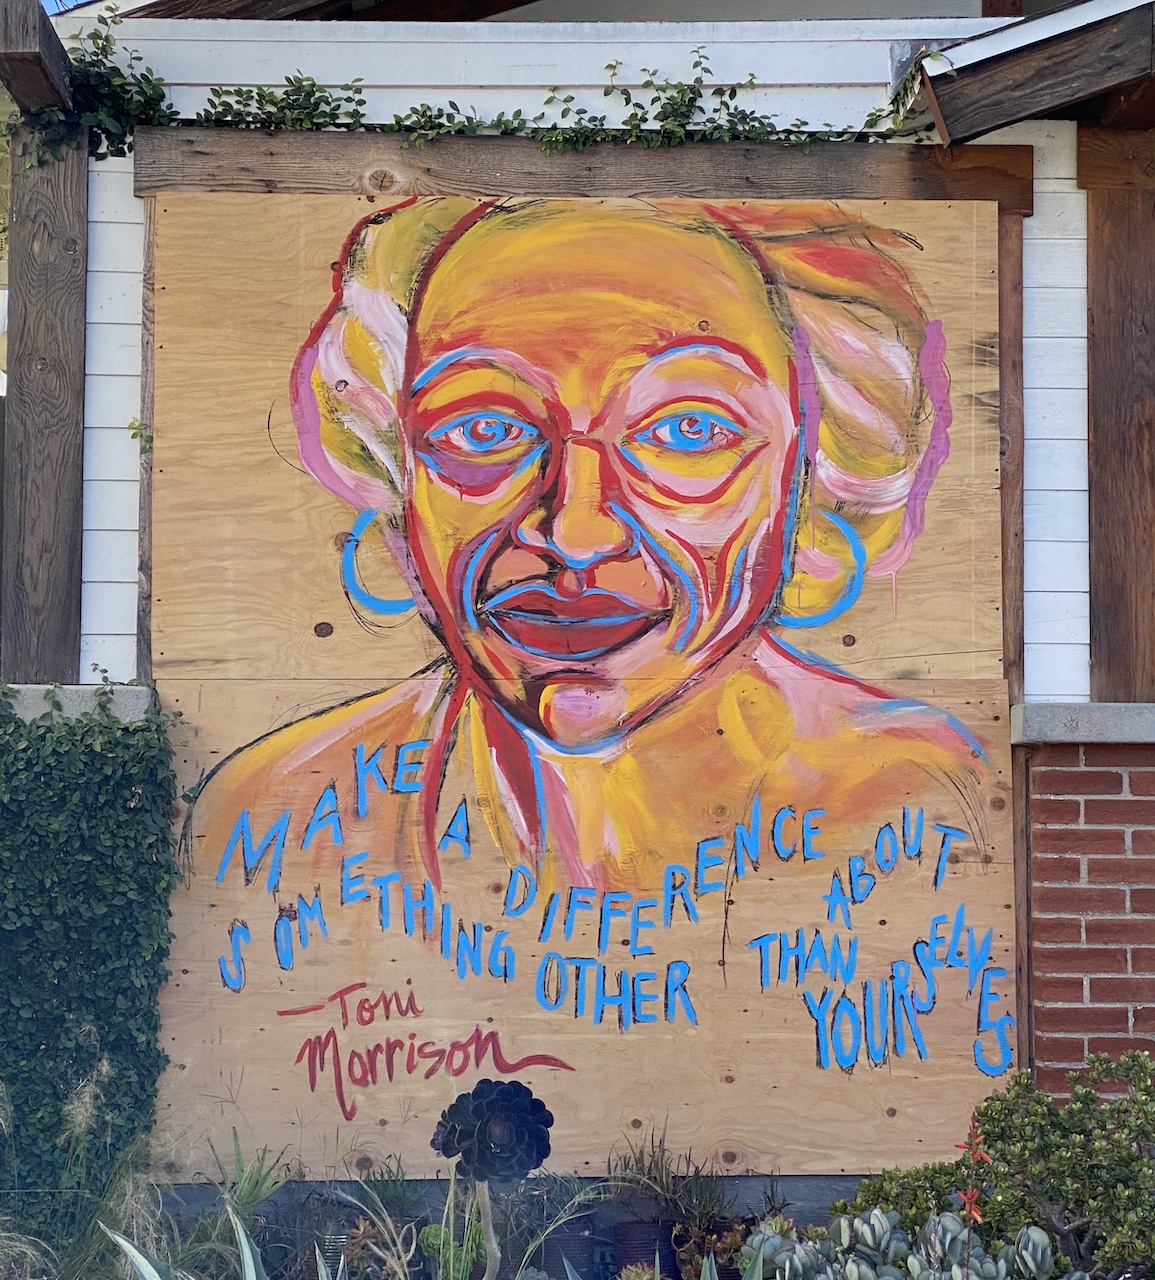 MAKE A DIFFERENCE ABOUT
SOMETHING OTHER THAN
YOURSELVES
—Toni
Morrison